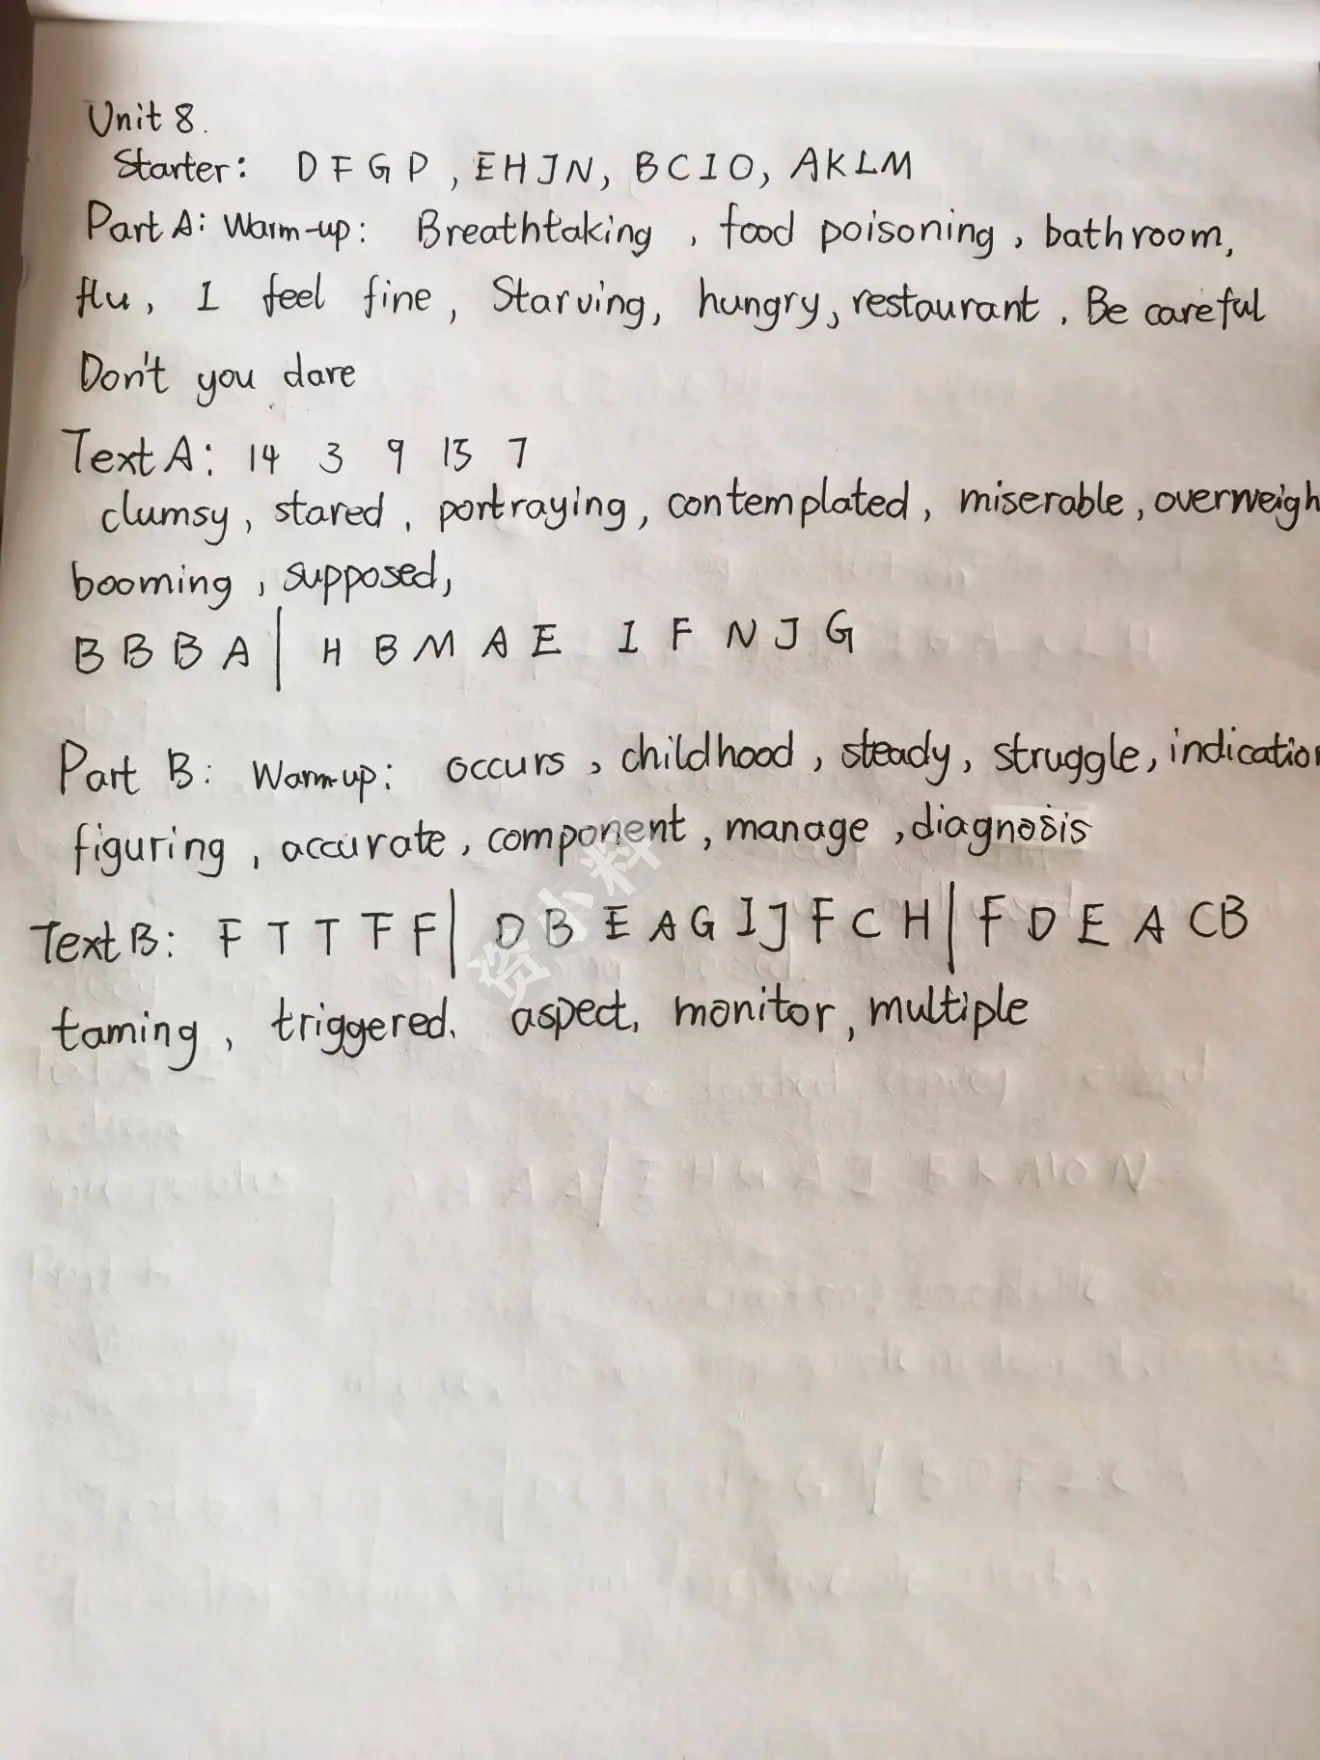 Unit 8.
Starter: DFGP, EHJN, BCIO, AKLM
Part A: Warm-up: Breathtaking, food poisoning, bathroom,
flu, I feel fine, Starving, hungry, restaurant. Be careful
Don't you dare
Text A: 14 3 9 15 7
clumsy, stared, portraying, contemplated, miserable, overweigh
booming, supposed,
B B B A | H B M A E I F N J G
Part B: Warm-up: occurs, childhood, steady, struggle, indication
figuring, accurate, component, manage, diagnosis
Text B: F T T F F | D B E A G I J F C H | F D E A C B
taming, triggered. aspect, monitor, multiple
资小料